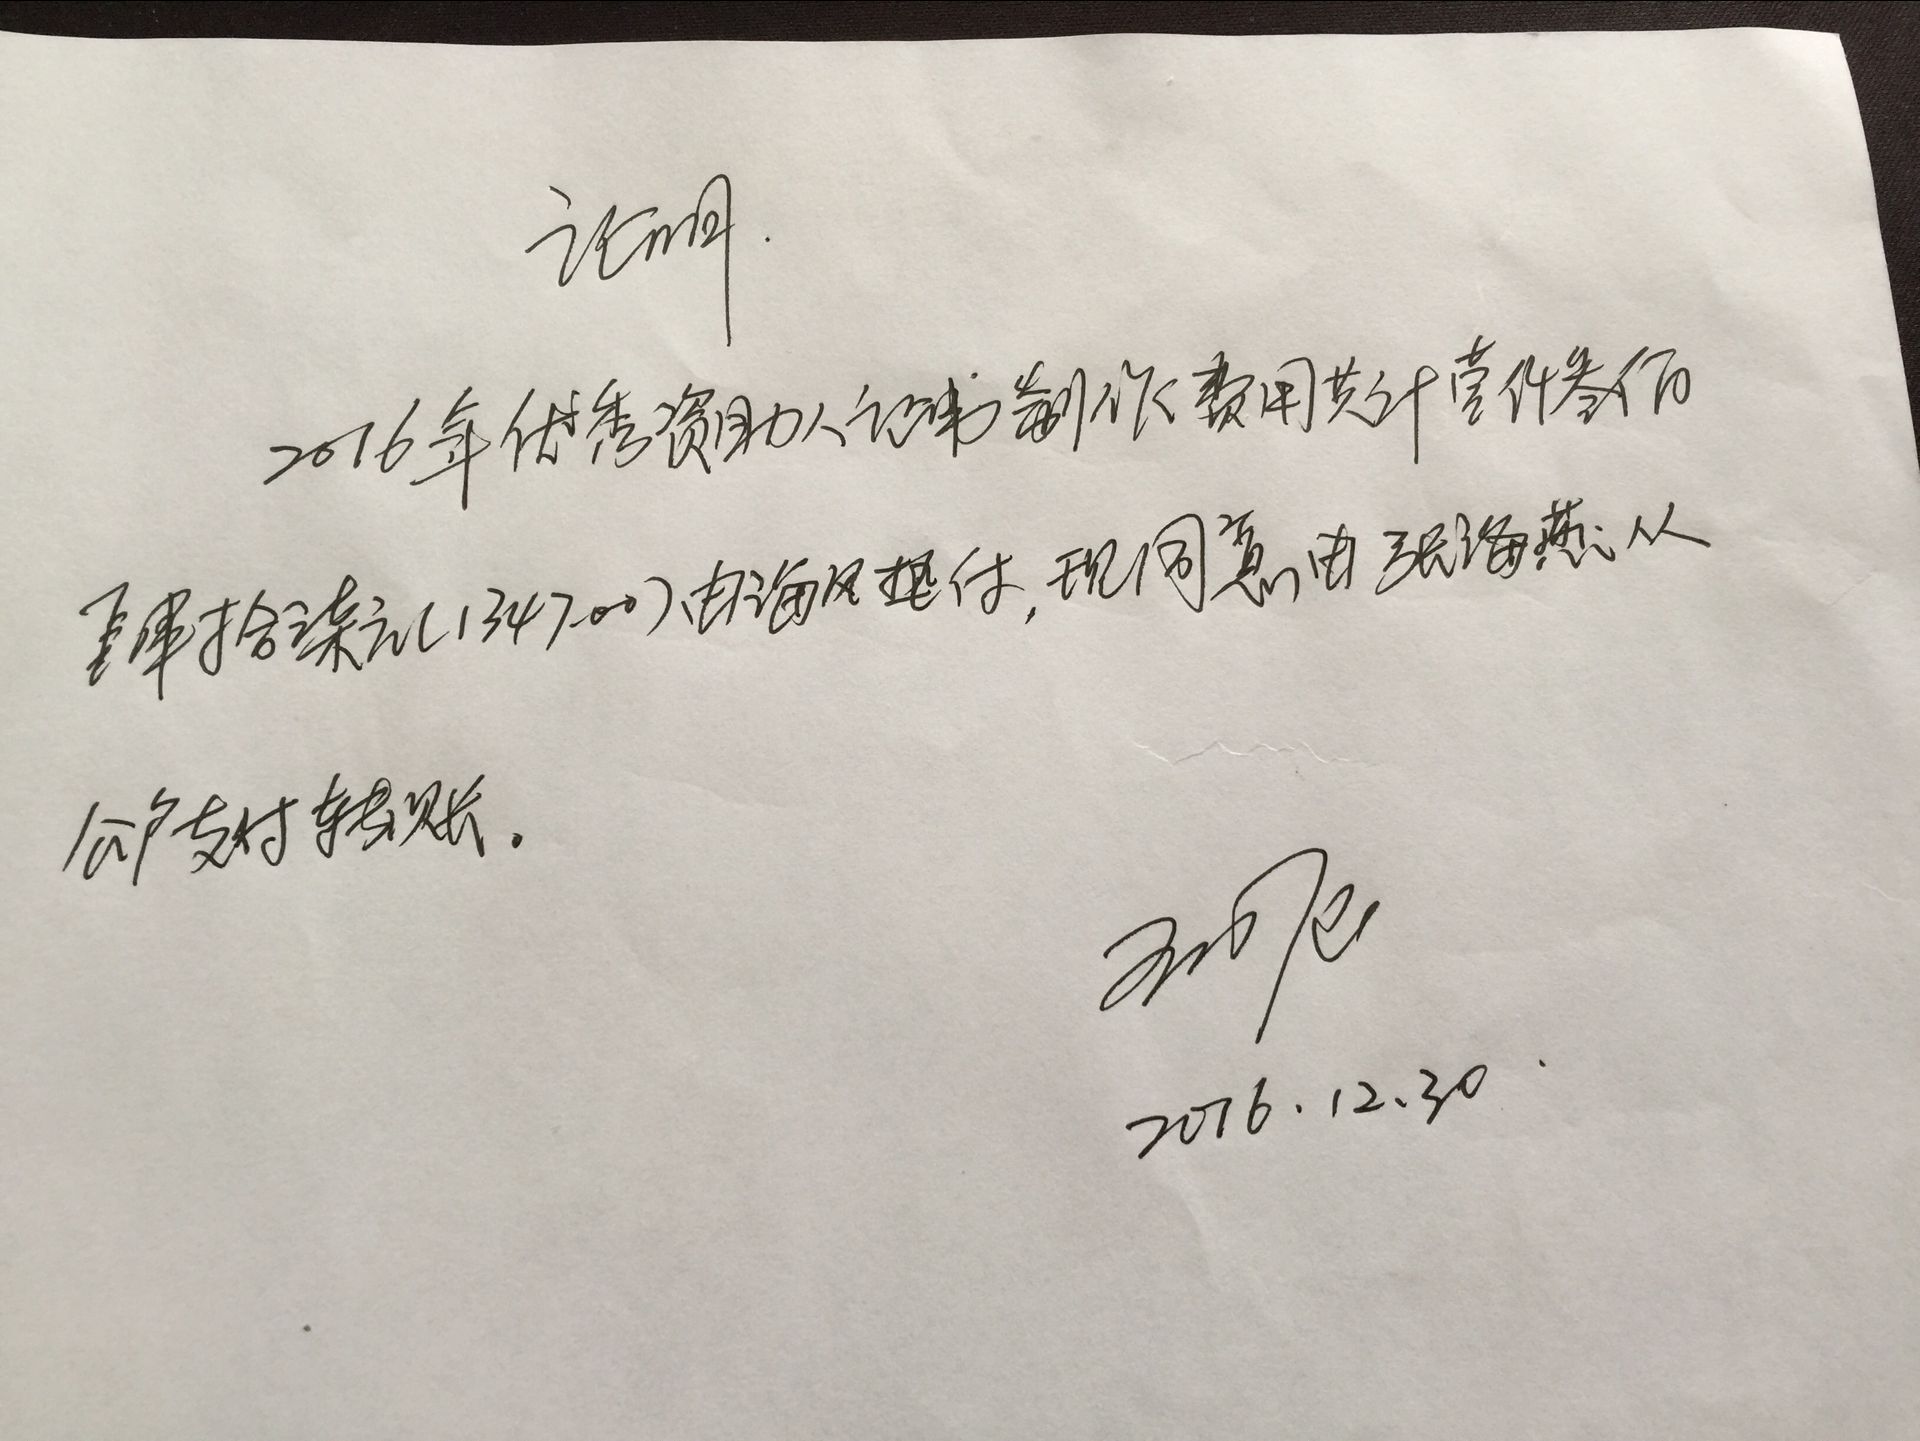 证明.
2016年优秀资助人证书制作费用共计壹仟叁佰
肆拾柒元(1347.00)由海风垫付,现同意由张海燕从
公户支付转账.
2016.12.30